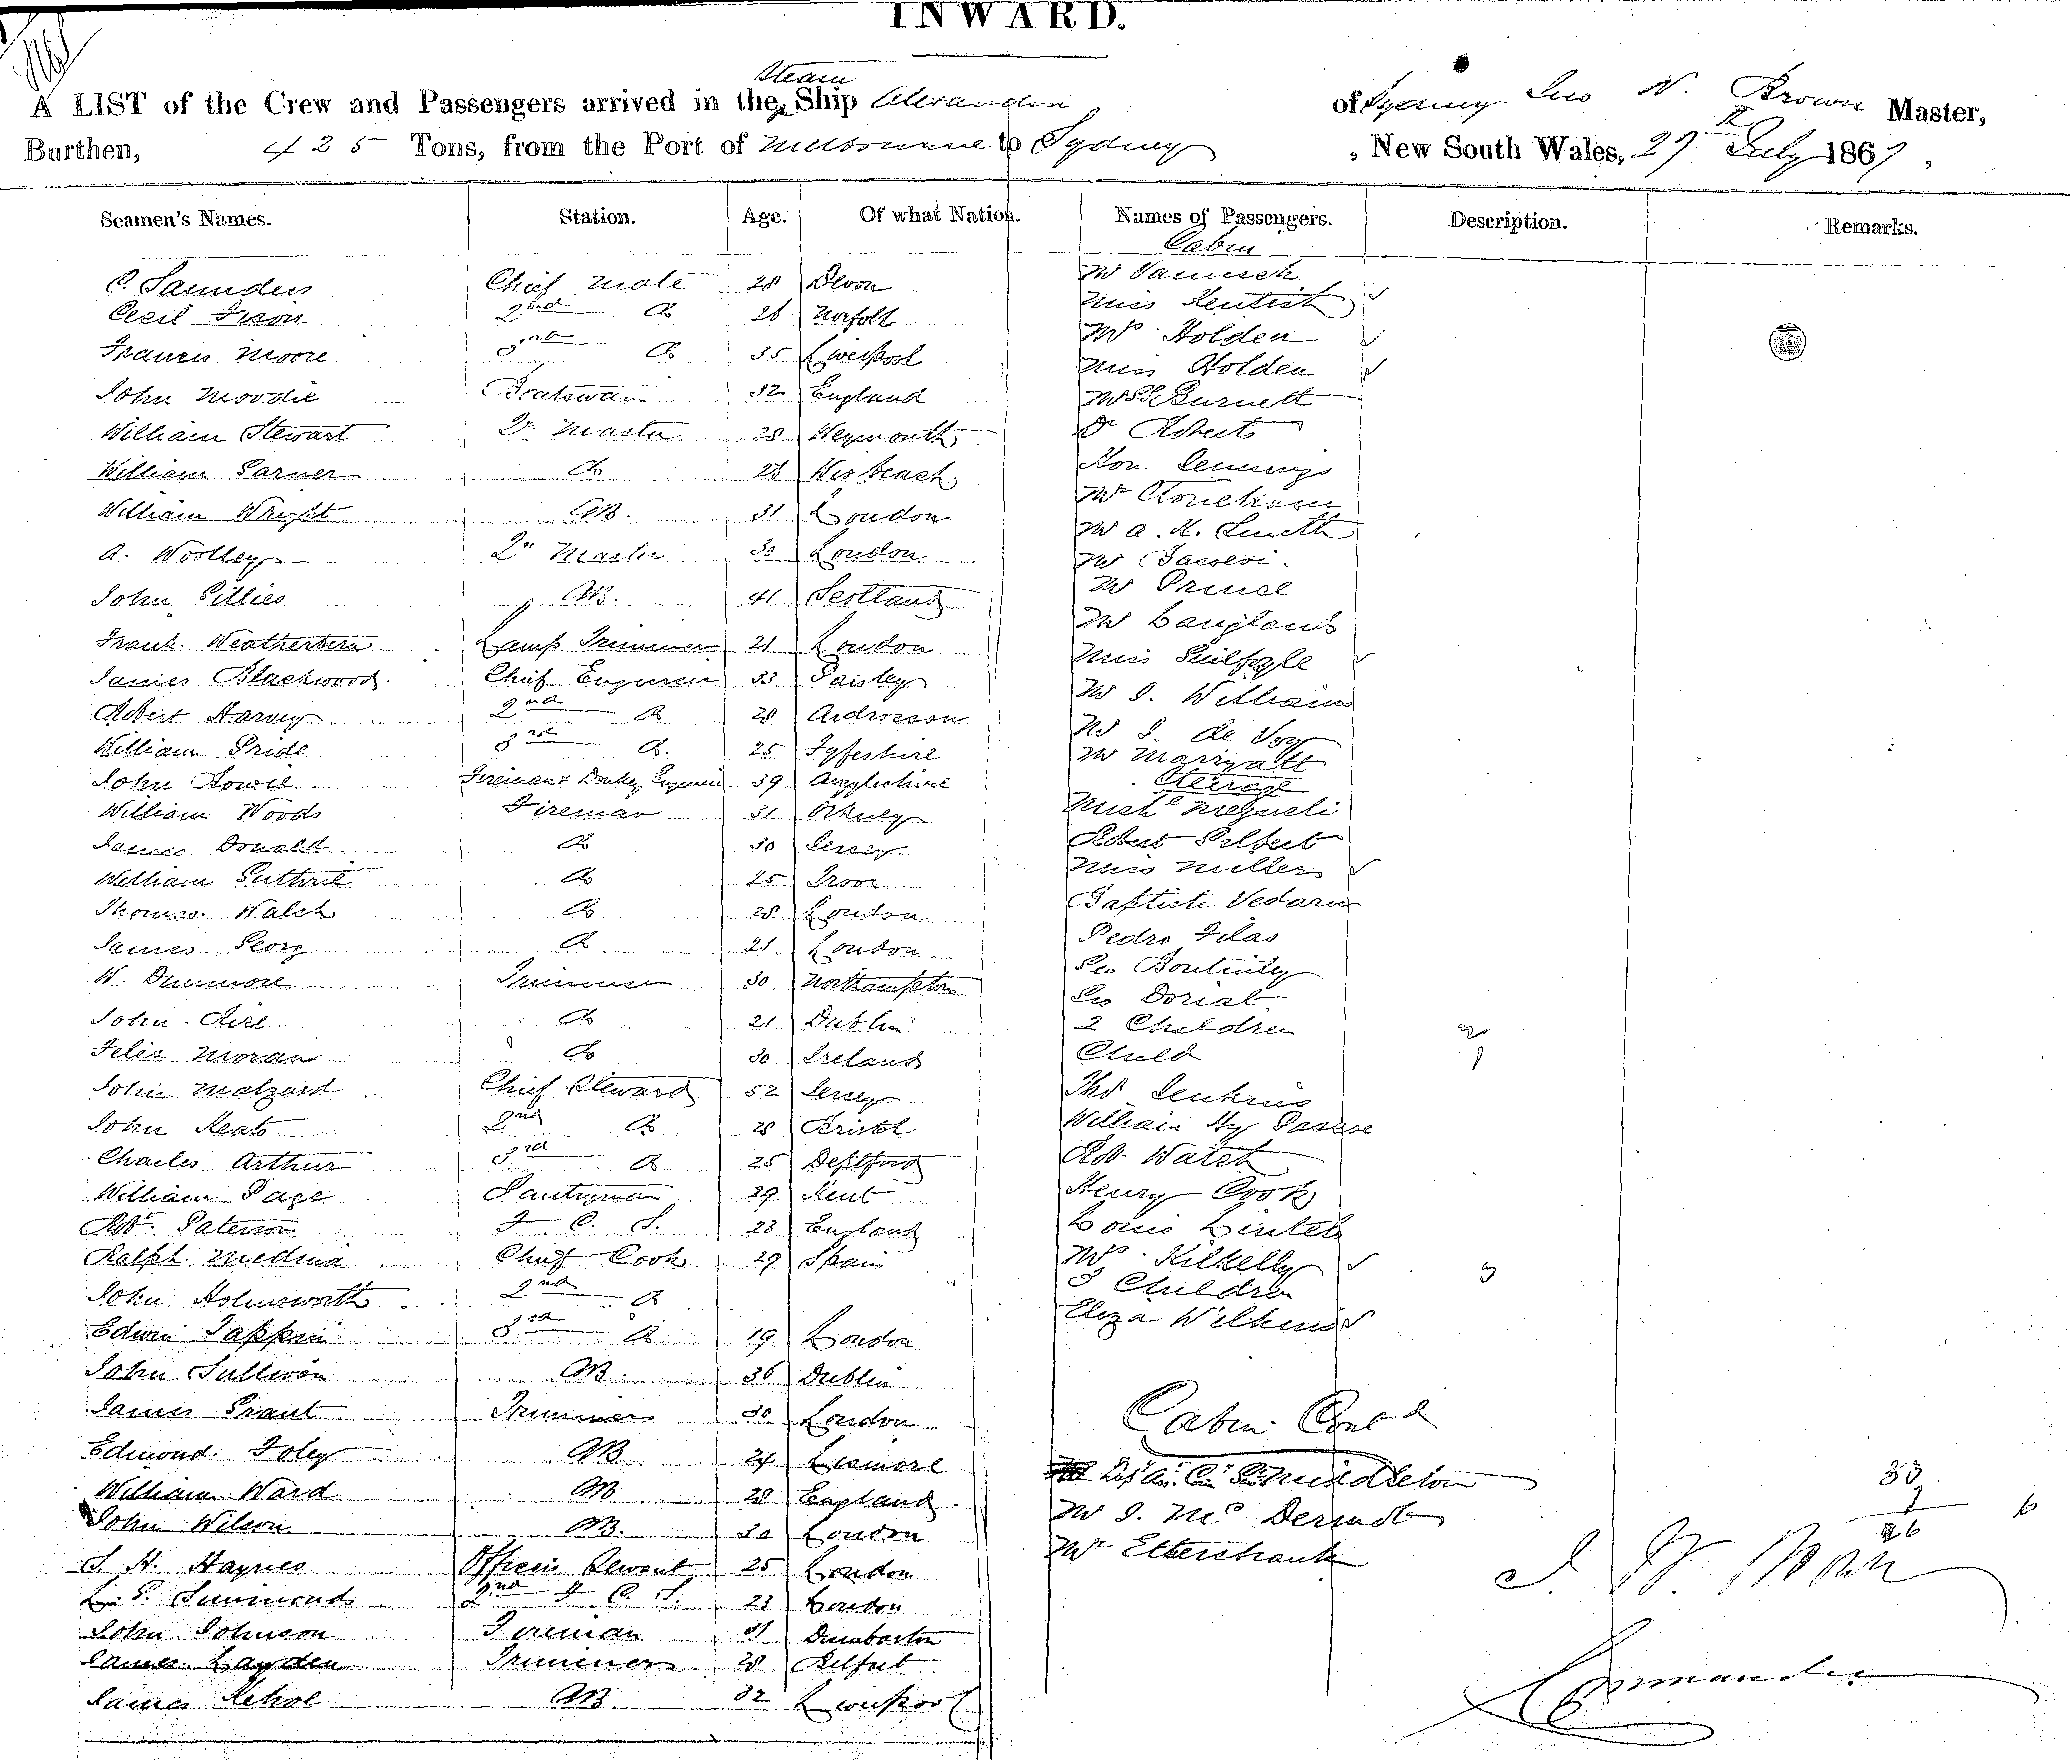 INWARD.
Steam
A LIST of the Crew and Passengers arrived in the Ship Alexandra of Sydney Jno N. Brown Master,
Burthen, 425 Tons, from the Port of Melbourne to Sydney, New South Wales, 27 July 1867.
Seamen's Names. Station. Age. Of what Nation. Names of Passengers. Description. Remarks.
Cabin
C. Saunders Chief Mate 28 Devon
Cecil 2nd Do 26 Norfolk
Francis Moore 3rd Do 35 Liverpool
John Moodie Boatswain 32 England
William Stewart Qr Master 28 Weymouth
William Garner Do 28 Wisbeach
William Wright AB. 31 London
A. Woolley Qr Master 30 London
John Gillies AB. 41 Scotland
Frank Lamp Trimmer 21 London
James Blackwood Chief Engineer 33 Paisley
Robert Harvey 2nd Do 28 Ardrossan
William Pride 3rd Do 25 Fyfeshire
John Fireman & Donkey Engineer 39 Argyleshire
William Woods Fireman 31 Orkney
James Donald Do 30 Jersey
William Guthrie Do 25 Troon
Thomas Walsh Do 28 London
James Do 21 London
W. Dunmore Trimmer 30 Northampton
John Do 21 Dublin
Felix Moran Do 30 Ireland
John Malzard Chief Steward 52 Jersey
John Keats 2nd Do 28 Bristol
Charles Arthur 3rd Do 25 Deptford
William Page Pantryman 29 Kent
Robt. Paterson F. C. S. 23 England
Ralph Medina Chief Cook 29 Spain
John Holmsworth 2nd Do
Edwin Tappin 3rd Do 19 London
John Sullivan AB. 36 Dublin
James Grant Trimmer 30 London
Edmond Foley AB. 24 Lismore
William Ward AB. 28 England
John Wilson AB. 30 London
J. H. Haynes Officers Servant 25 London
L. G. Simmonds 2nd F C. S. 23 London
John Johnson Fireman 31 Dumbarton
James Layden Trimmer 28 Belfast
James AB. 32 Liverpool
Mr
Miss Kentish
Mrs Holden
Miss Holden
Mrs Burnett
Dr Roberts
Hon. Jennings
Mr
Mr A. H. Smith
Mr
Mr Prince
Mr Langlands
Miss Guilfoyle
Mr J. Williams
Mr J. de Voy
Mr Marryatt
Steerage
Robert Gilbert
Miss Miller
Baptiste
Pedro Filas
Geo
Geo Dorial
2 Children 2
Child 1
Thos Jenkins
William Hy
Robt Walsh
Henry Cook
Louis
Mrs Kilkelly
3 Children 3
Eliza Wilkins
Cabin Contd
Middleton
Mr J. McDermott
Mr Ettershank
33
7
26 6
J N. Brown
Commander